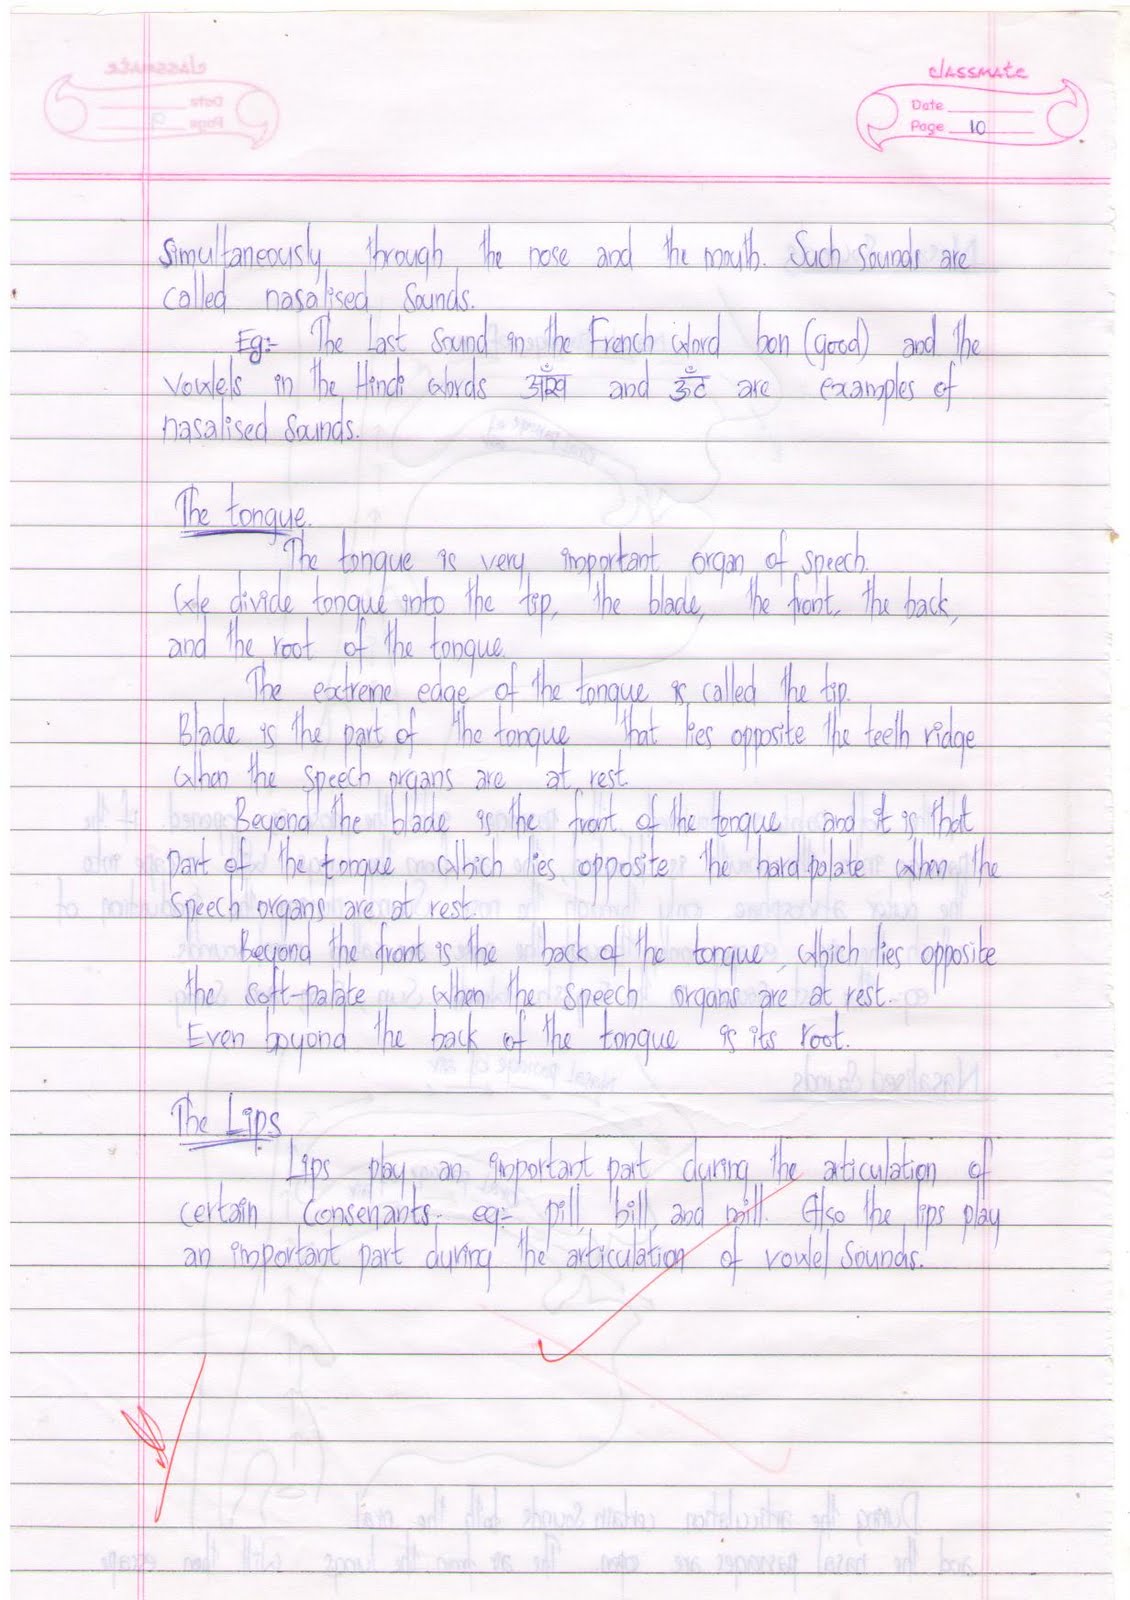 classmate
Date
Page 10
Simultaneously through the nose and the mouth. Such sounds are
called nasalised sounds.
Eg:- The last sound in the French word bon (good) and the
vowels in the Hindi words आँख and ऊँट are examples of
nasalised sounds.
The tongue.
The tongue is very important organ of speech.
We divide tongue into the tip, the blade, the front, the back,
and the root of the tongue.
The extreme edge of the tongue is called the tip.
Blade is the part of the tongue that lies opposite the teeth ridge
when the speech organs are at rest
Beyond the blade is the front of the tongue and it is that
part of the tongue which lies opposite the hard palate when the
speech organs are at rest.
Beyond the front is the back of the tongue, which lies opposite
the soft-palate when the speech organs are at rest.
Even beyond the back of the tongue is its root.
The Lips
Lips play an important part during the articulation of
certain consenants. eg:- pill, bill, and mill. Also the lips play
an important part during the articulation of vowel sounds.